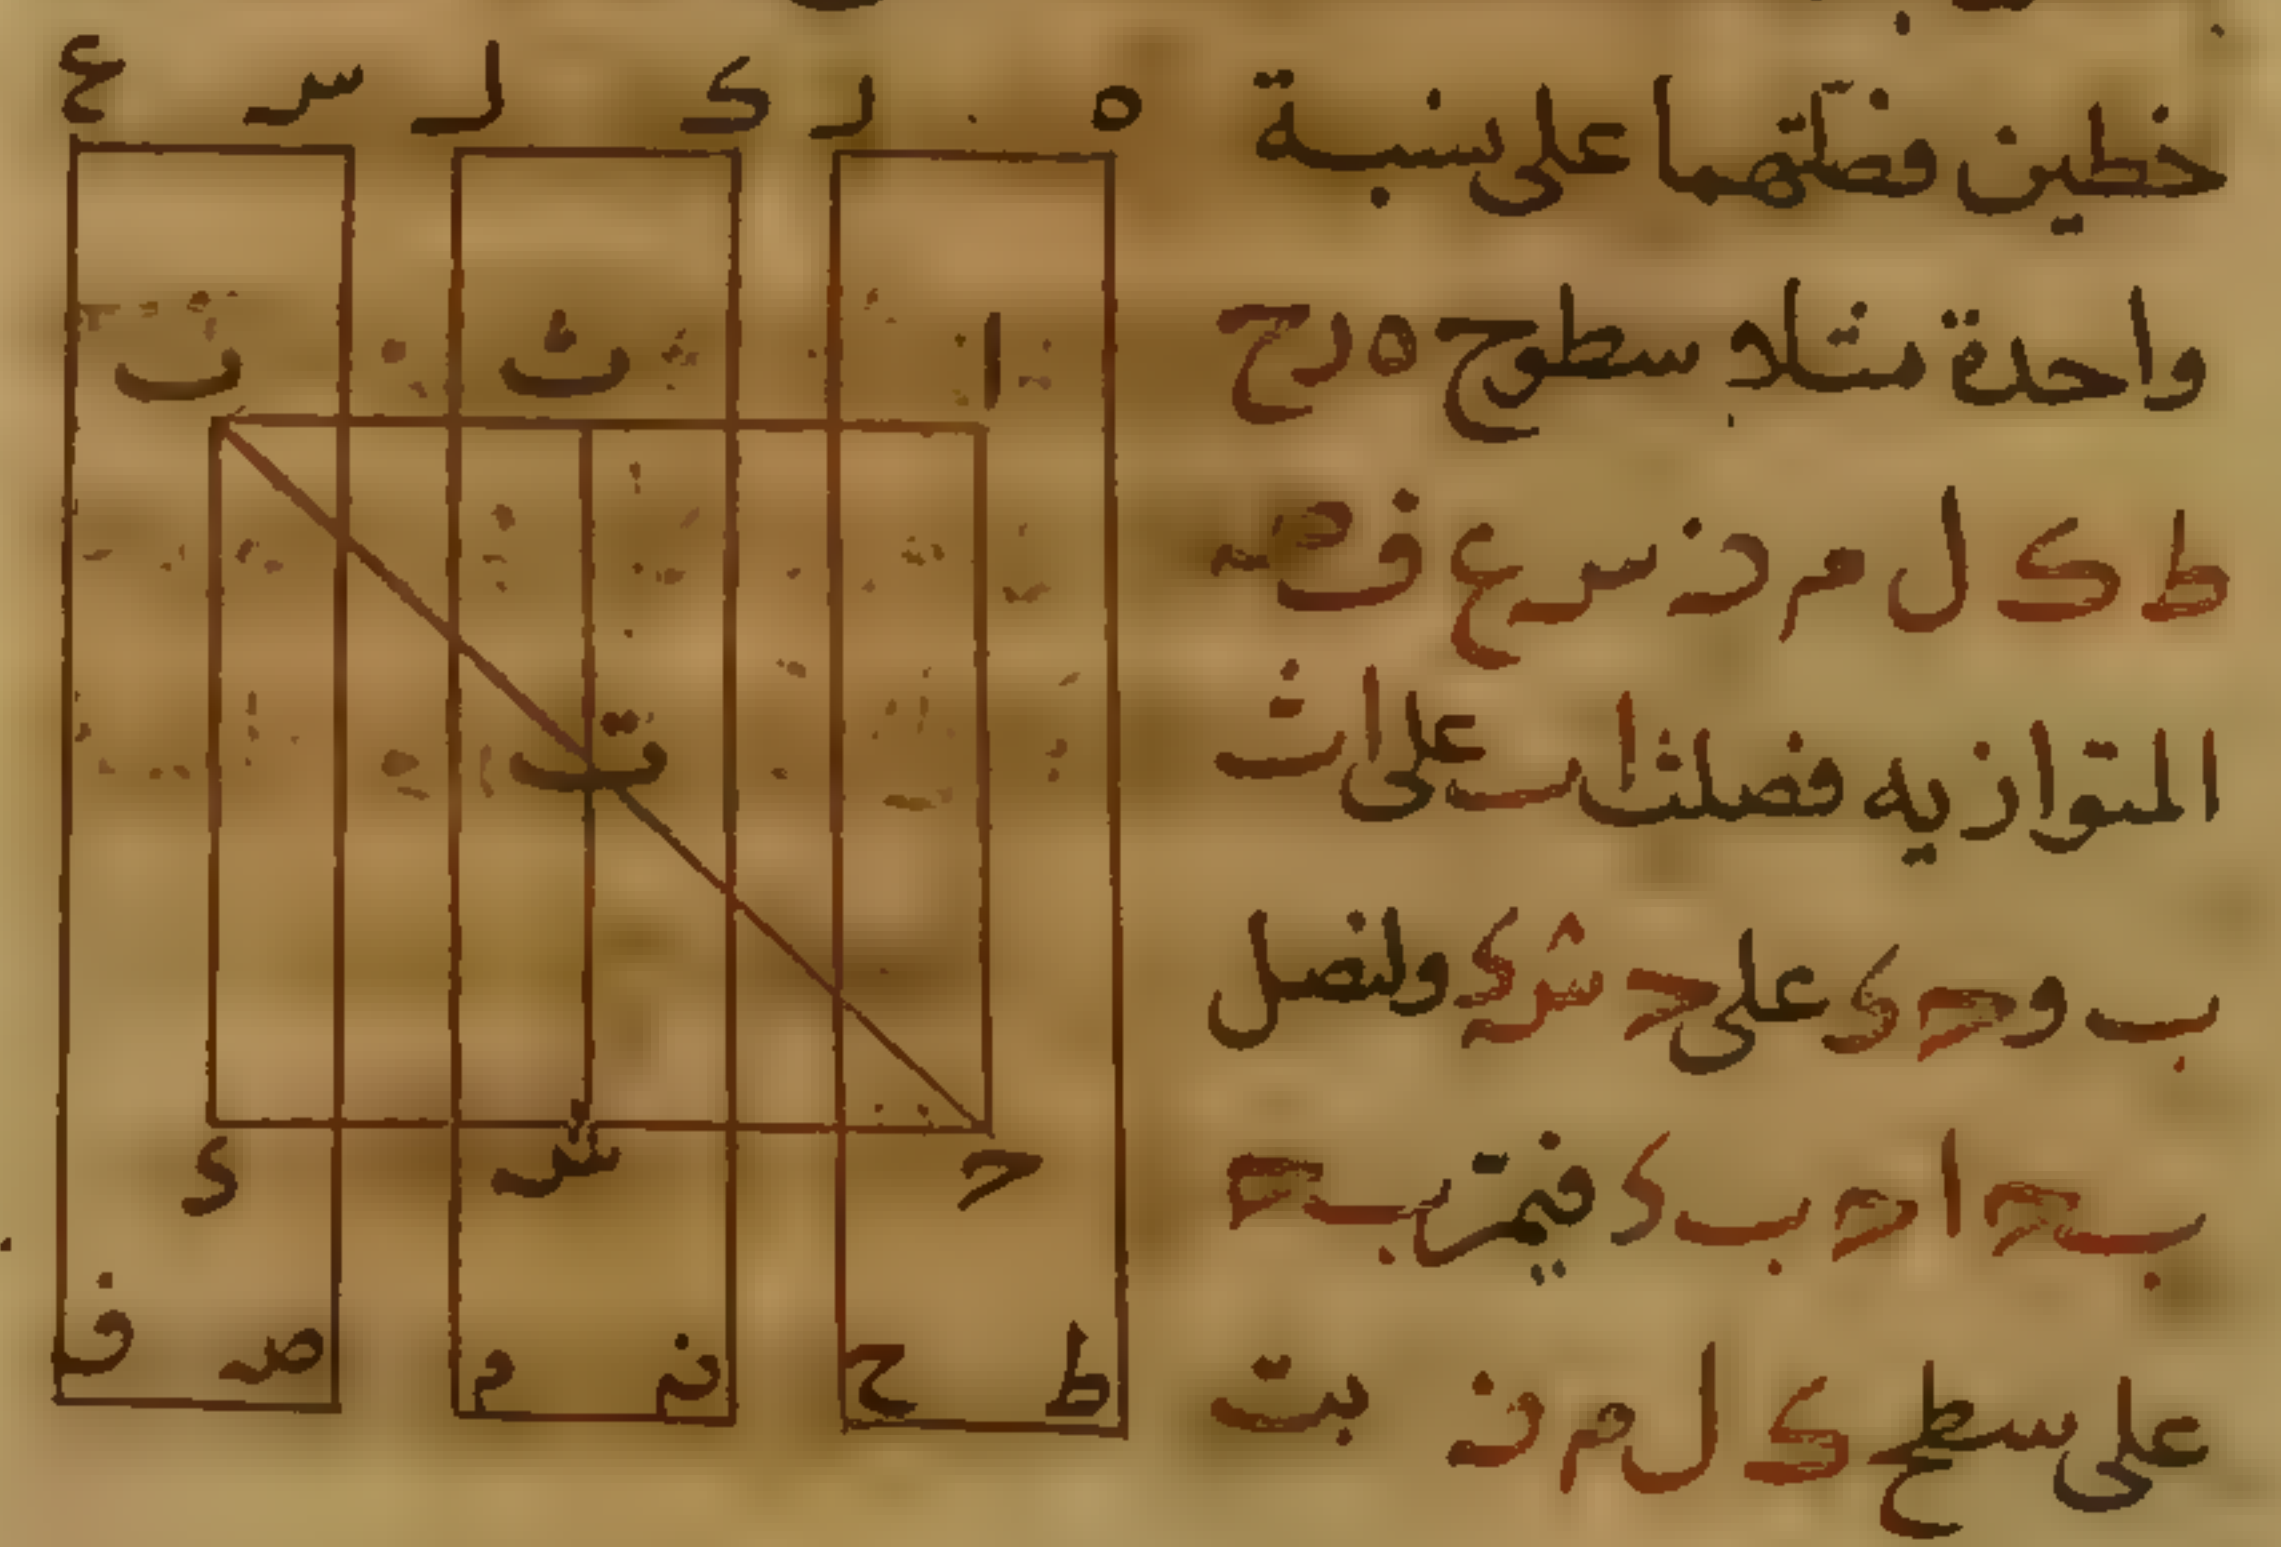 خطين فصلتهما على نسبة
واحدة مثلا سطوح ه ر ح
ط ك ل م ن س ع ف ص
المتوازيه فصلت ا ب على ا ث
ب و ح د على ح ش د ولنصل
ب ح ا ح ب د فيمر ب ح
على سطح ك ل م ن بت
ه ر ك ل س ع
ا ث ب
ت
ح ش د
ط ح ن م ص ف